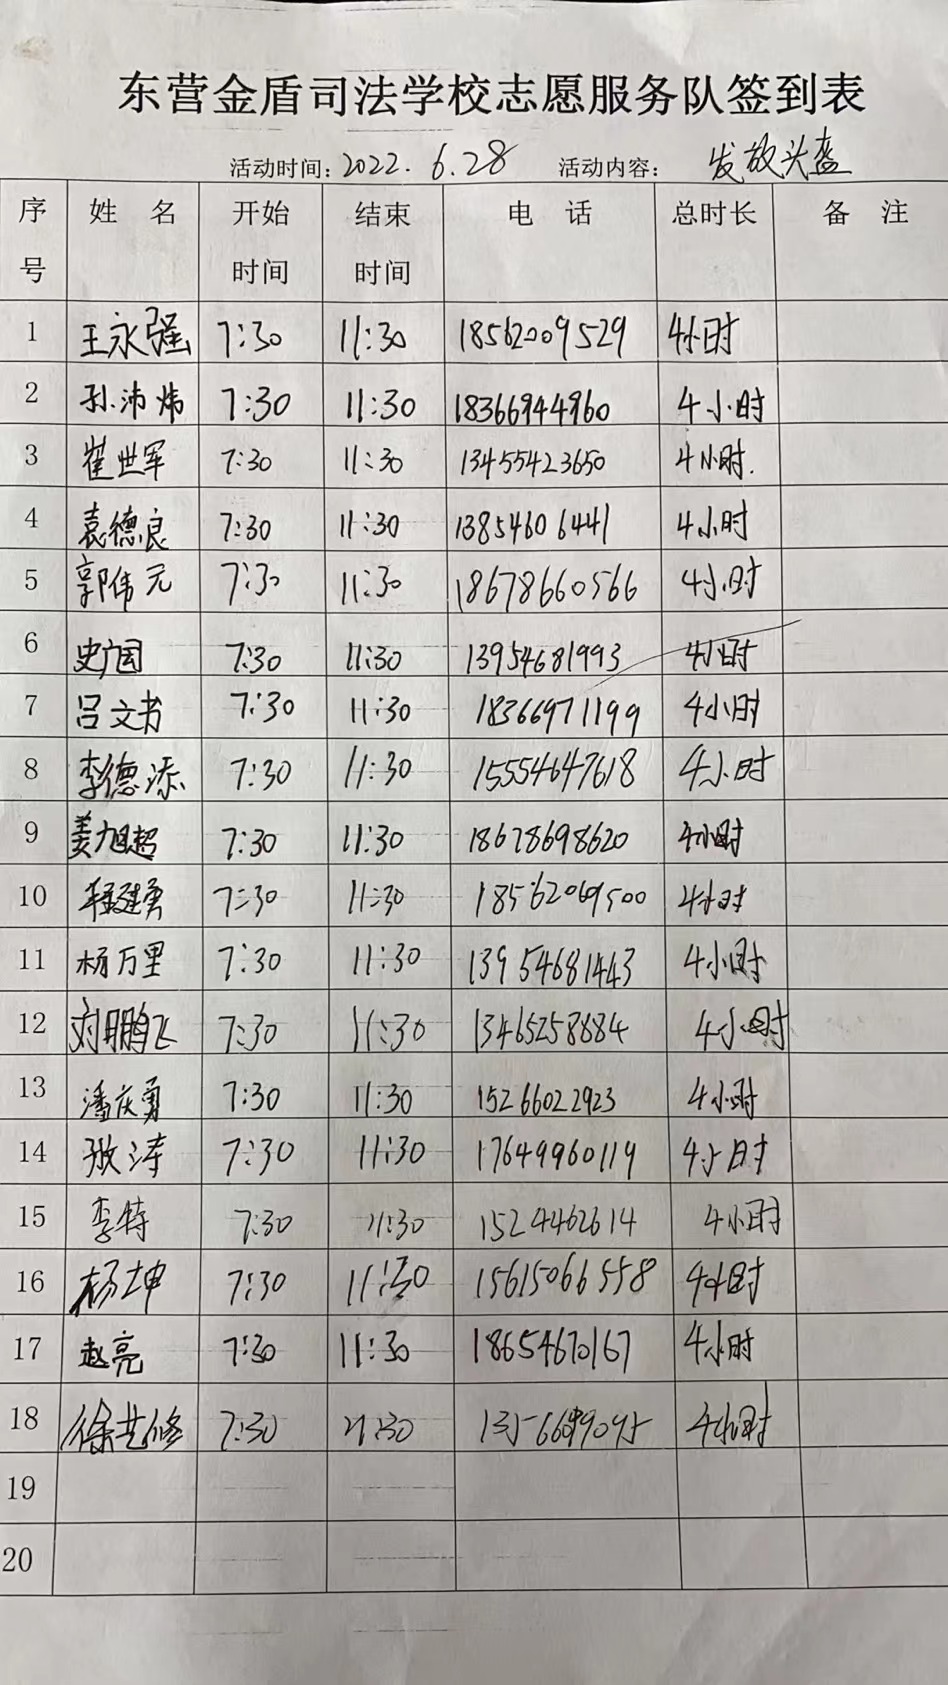 东营金盾司法学校志愿服务队签到表
活动时间：2022.6.28 活动内容：发放头盔
序号 姓名 开始时间 结束时间 电话 总时长 备注
1 王永强 7:30 11:30 18562009529 4小时
2 孙沛炜 7:30 11:30 18366944960 4小时
3 崔世军 7:30 11:30 13455423650 4小时.
4 袁德良 7:30 11:30 13854606441 4小时
5 郭伟元 7:30 11:30 18678660566 4小时
6 史广国 7:30 11:30 13954681993 4小时
7 吕文书 7:30 11:30 18366971199 4小时
8 李德添 7:30 11:30 15554647618 4小时
9 姜旭超 7:30 11:30 18678698620 4小时
10 程建勇 7:30 11:30 18562069500 4小时
11 杨万里 7:30 11:30 13954681443 4小时
12 刘鹏飞 7:30 11:30 13465258684 4小时
13 潘庆勇 7:30 11:30 15266022923 4小时
14 张涛 7:30 11:30 17649960119 4小时
15 李特 7:30 11:30 1524462614 4小时
16 杨坤 7:30 11:30 15615066558 4小时
17 赵亮 7:30 11:30 18654670167 4小时
18 徐 修 7:30 11:30 4小时
19
20